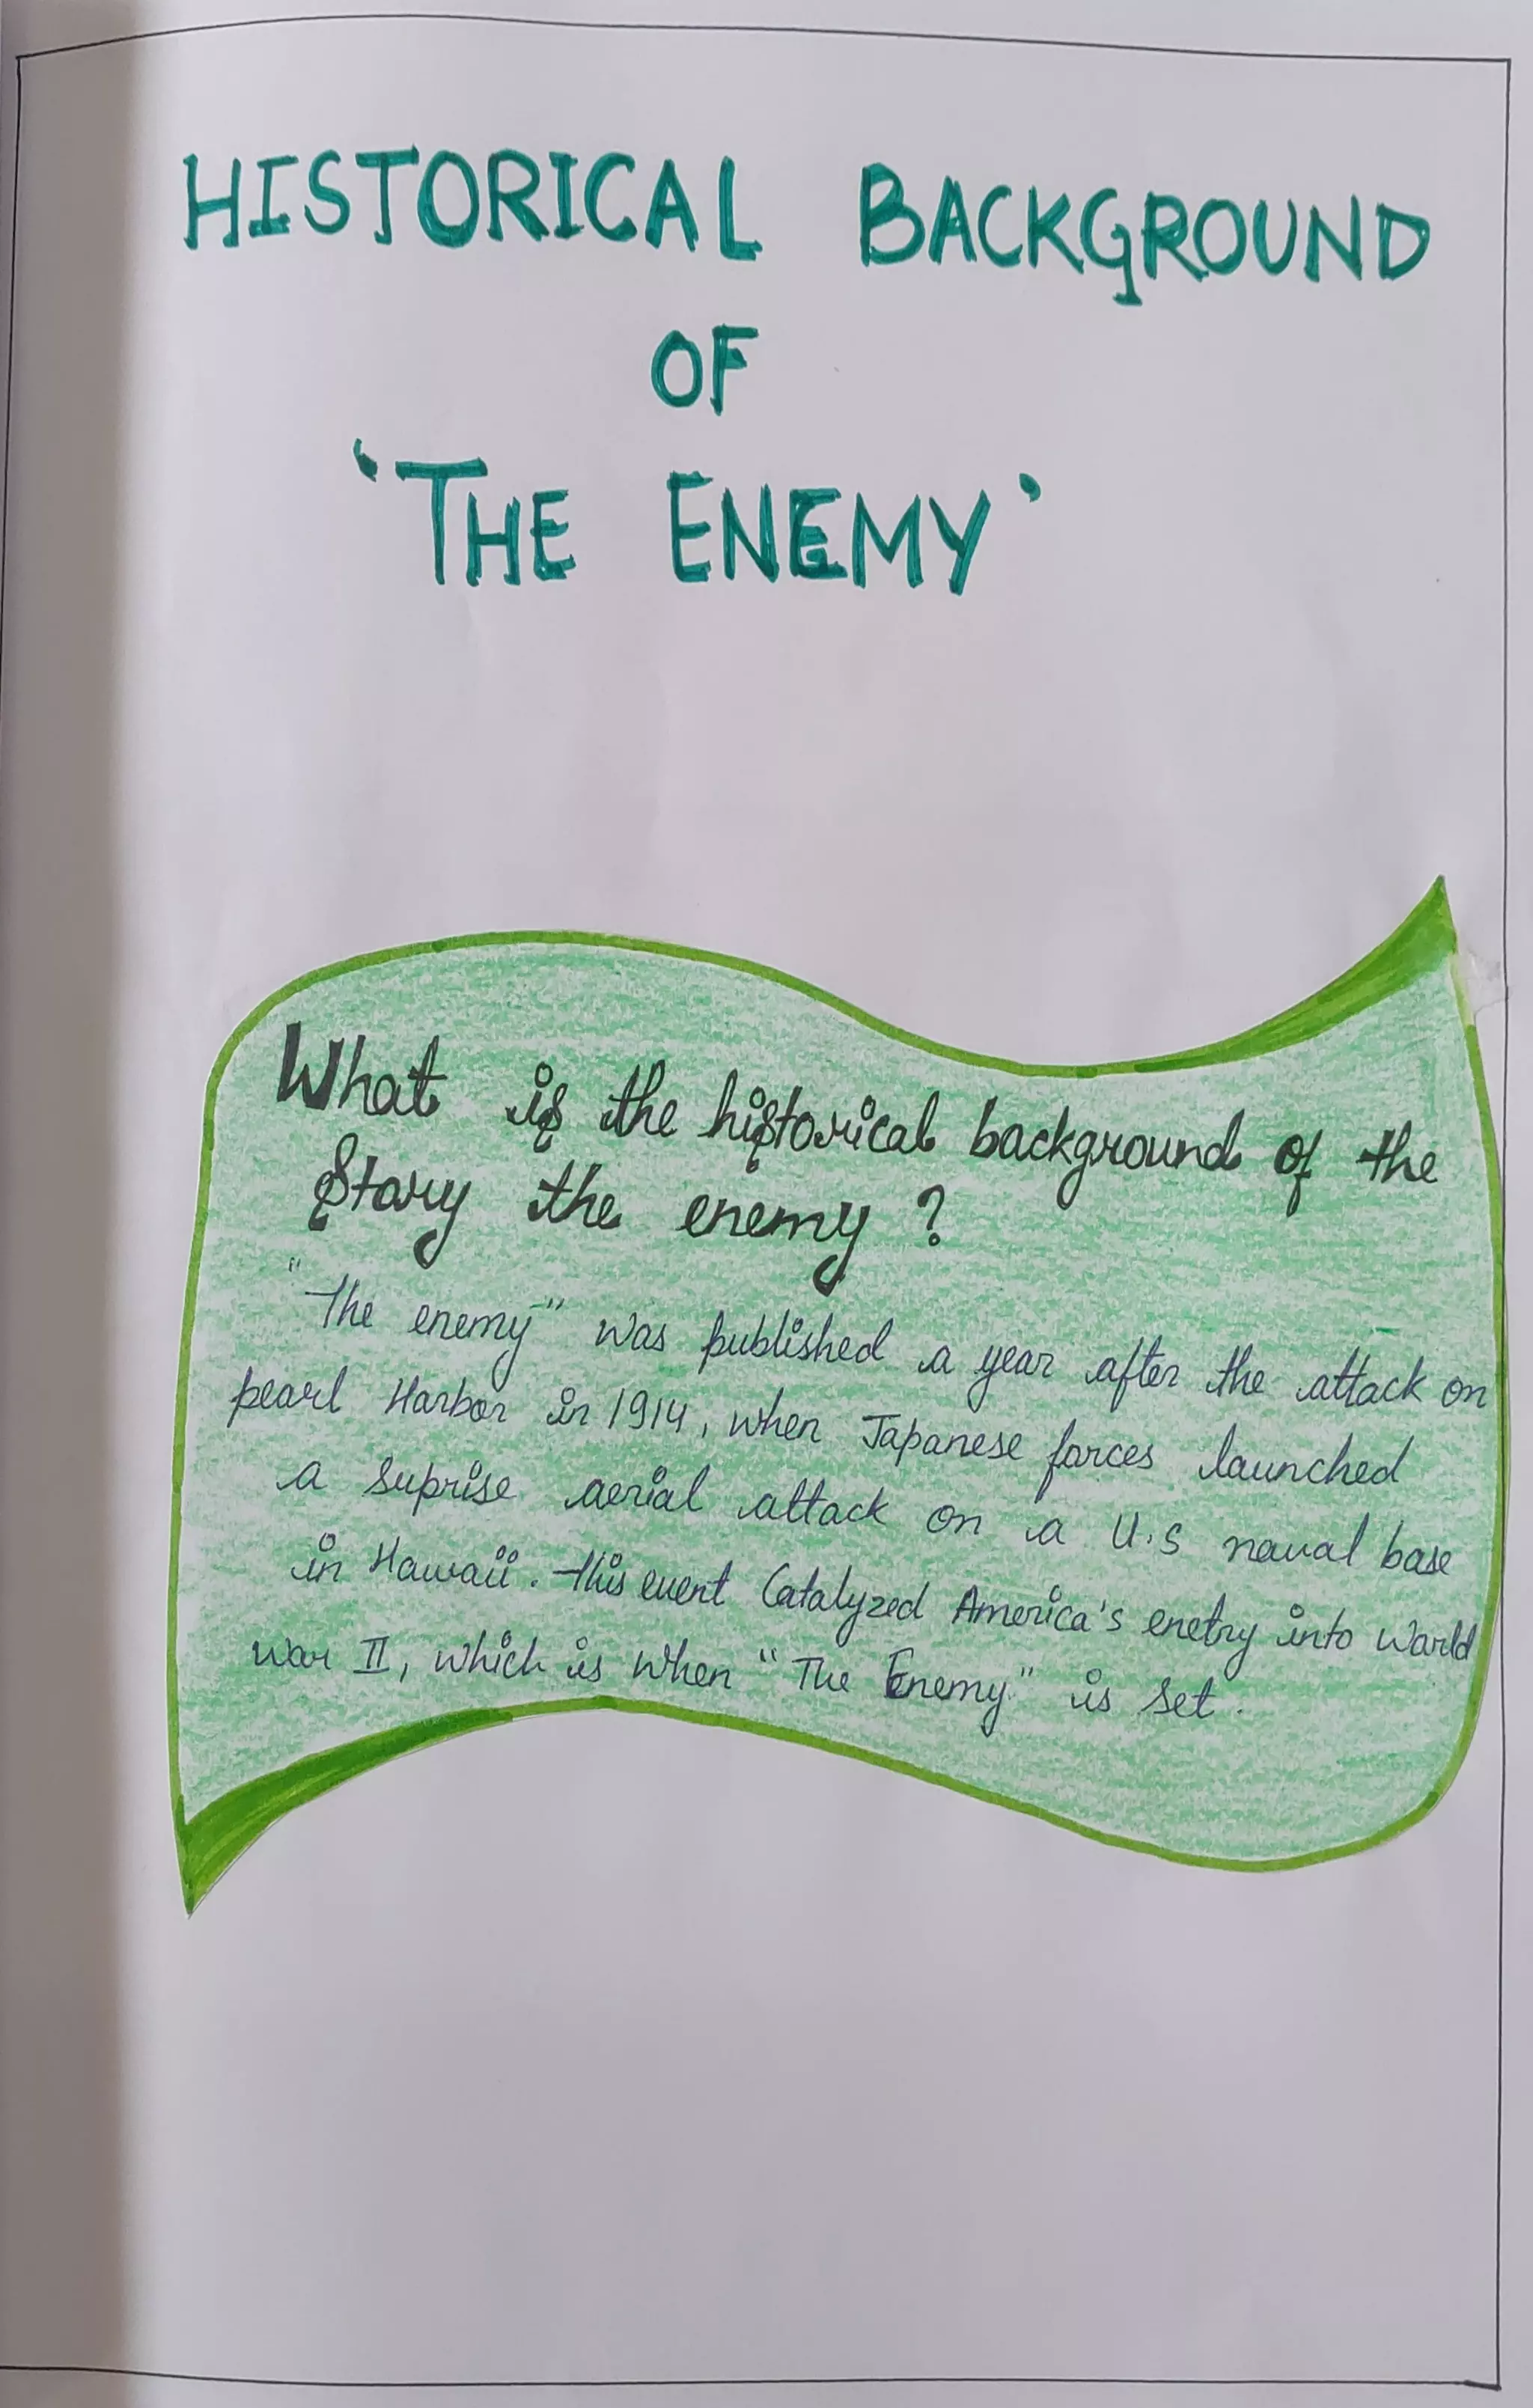 HISTORICAL BACKGROUND
OF
'THE ENEMY'
What is the historical background of the
Story the enemy ?
"The enemy" was published a year after the attack on
pearl Harbor in 1914, when Japanese forces launched
a suprise aerial attack on a U.S naval base
in Hawaii. This event Catalyzed America's enetry into world
war II, which is when "The Enemy" is set.